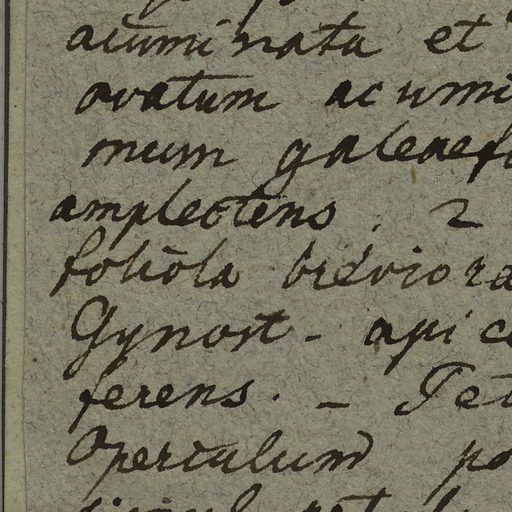 acuminata et
ovatum acumi
mum galeaefo
amplectens. 2
foliola breviora
Gynost - apice
ferens. - Tet
Operculum po